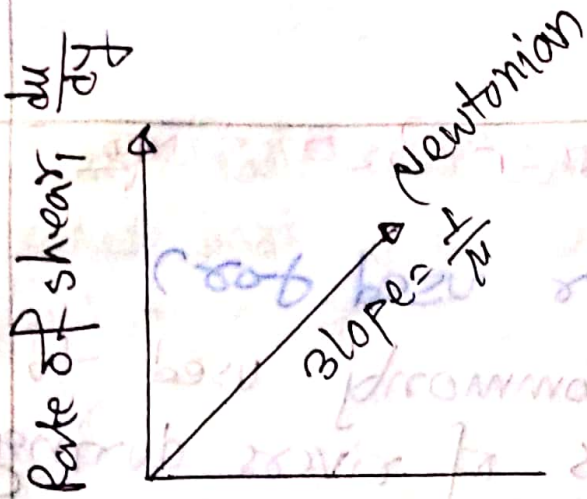 Rate of shear, du/dy
Newtonian
Slope = 1/μ